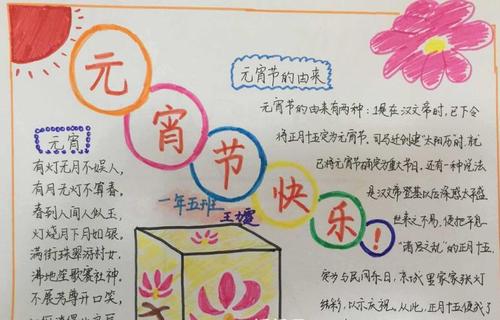 元宵节快乐!
一年五班
元宵
有灯无月不娱人,
有月无灯不算春。
春到人间人似玉,
灯烧月下月如银。
满街珠翠游村女,
沸地笙歌赛社神。
不展芳尊开口笑,
元宵节的由来
元宵节的由来有两种:1是在汉文帝时,已下令
将正月十五定为元宵节。司马迁创建"太阳历"时,就
已将元宵节确定为重大节日。还有一种说法
是汉文帝登基以后深感太平盛
世来之不易,便把平息
"诸吕之乱"的正月十五
定为与民同乐日,京城里家家张灯
结彩,以示庆祝。从此,正月十五便成了